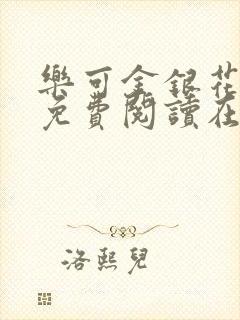 樂可金銀花
免費閱讀在
洛熙兒